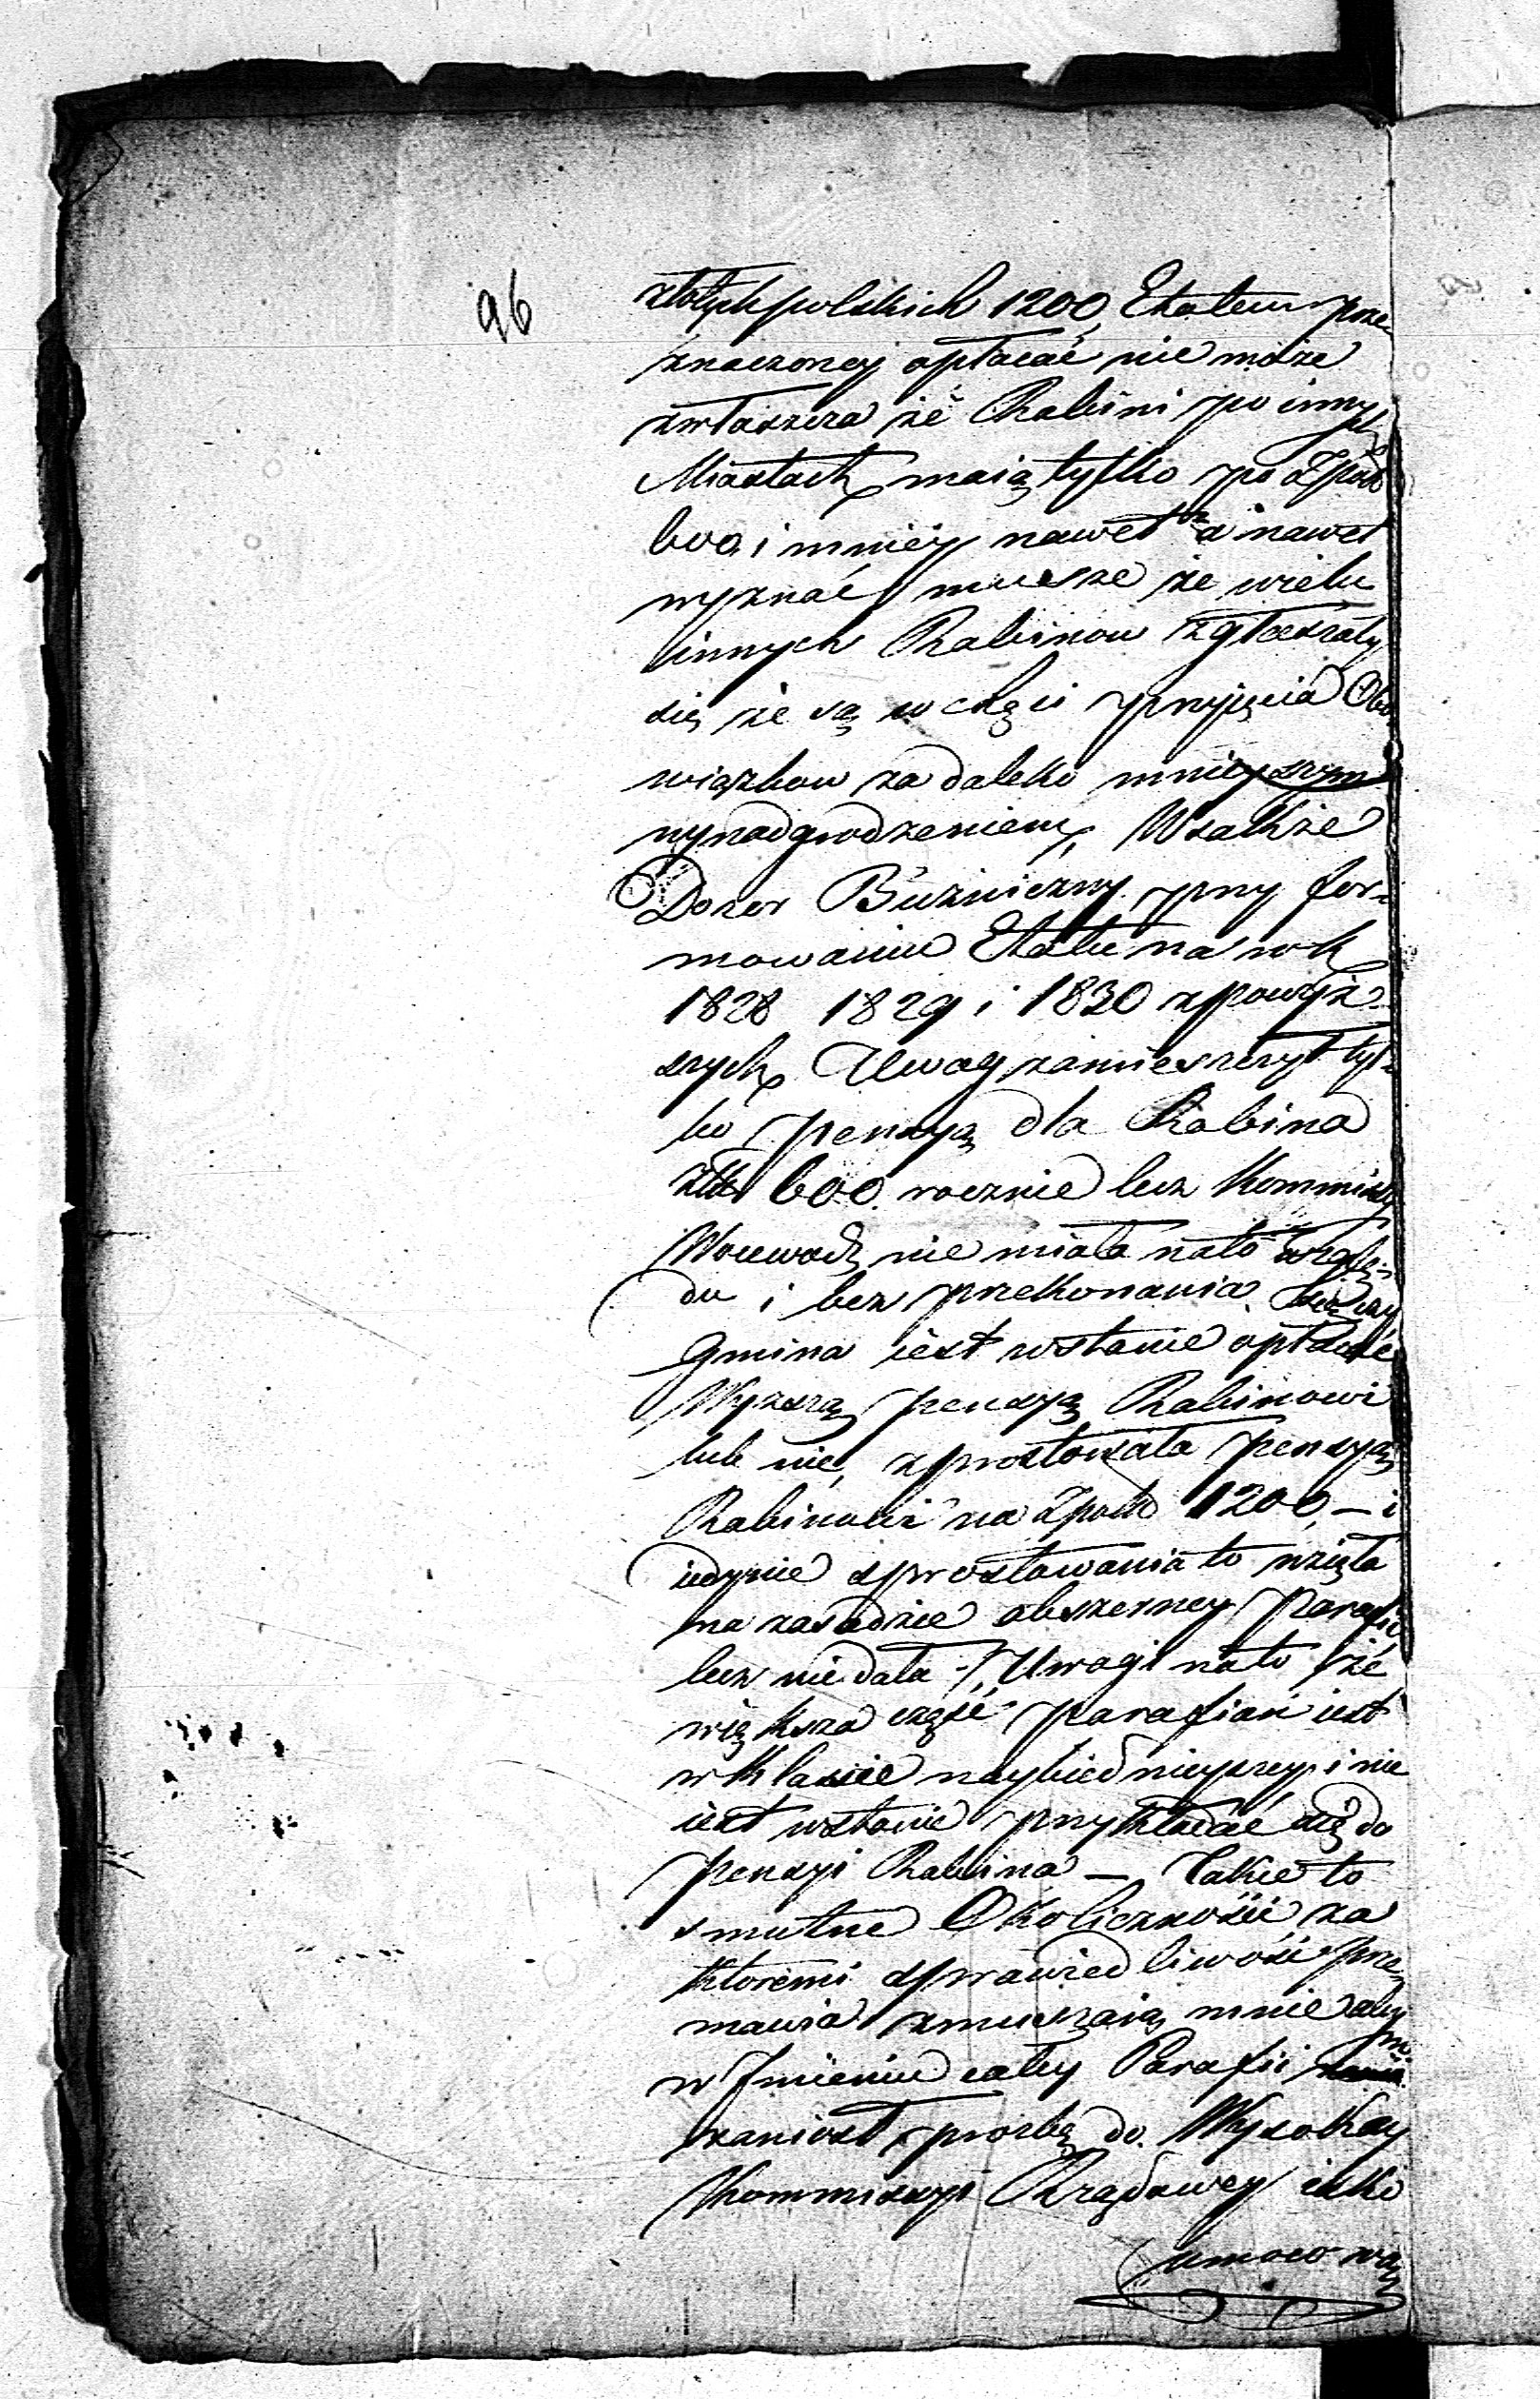 96
złotych polskich 1200, Etatem prze
znaczoney opłacać nie może
zwłaszcza że Rabini po innych
Miastach maią tylko po Zpols
600, i mniey nawet a nawet
wyznać musze że wielu
innych Rabinow zgłaszały
się że są w chęci przyjęcia Obo
wiązkow za daleko mnieyszym
wynadgrodzeniem, Wsakże
Dozor Bużniczny przy for-
mowaniu Etatu na rok
1828 1829 i 1830 z powyż
szych Uwag zamieszczył tyl-
ko pensyą dla Rabina
600. rocznie lecz Kommissy
Woiewodz nie miała nato wzglę-
du i bez przekonania czy
Gmina iest wstanie opłacać
Wyzszą pensyą Rabinowi
lub nie, zprostowała pensyą
Rabinowi na Zpols 1200, – i
iedynie sprostowania to wzięła
na zasadzie obszerney Parafii
lecz nie dała Uwagi nato że
większa część parafian iest
w klassie naybiednieyszey i nie
iest wstanie przykładać się do
pensyi Rabina – Takie to
smutne Okoliczności za
ktoremi sprawiedliwość prze
mawia zmuszaią mnie abym
w Imieniu całey Parafii
zaniosł prozbę do Wysokiey
Kommissyi Rządowey iako
umocowa